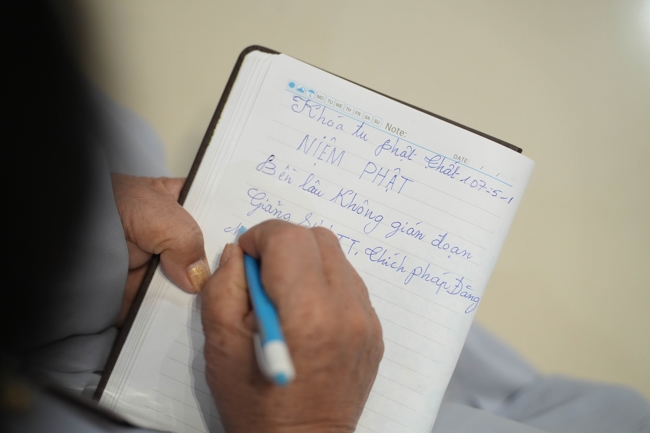 MO TU WE TH FR SA SU Note: DATE / /
Khóa tu phật thất 107-5-1
NIỆM PHẬT
Bền lâu Không gián đoạn
Giảng TT. Thích pháp Đăng